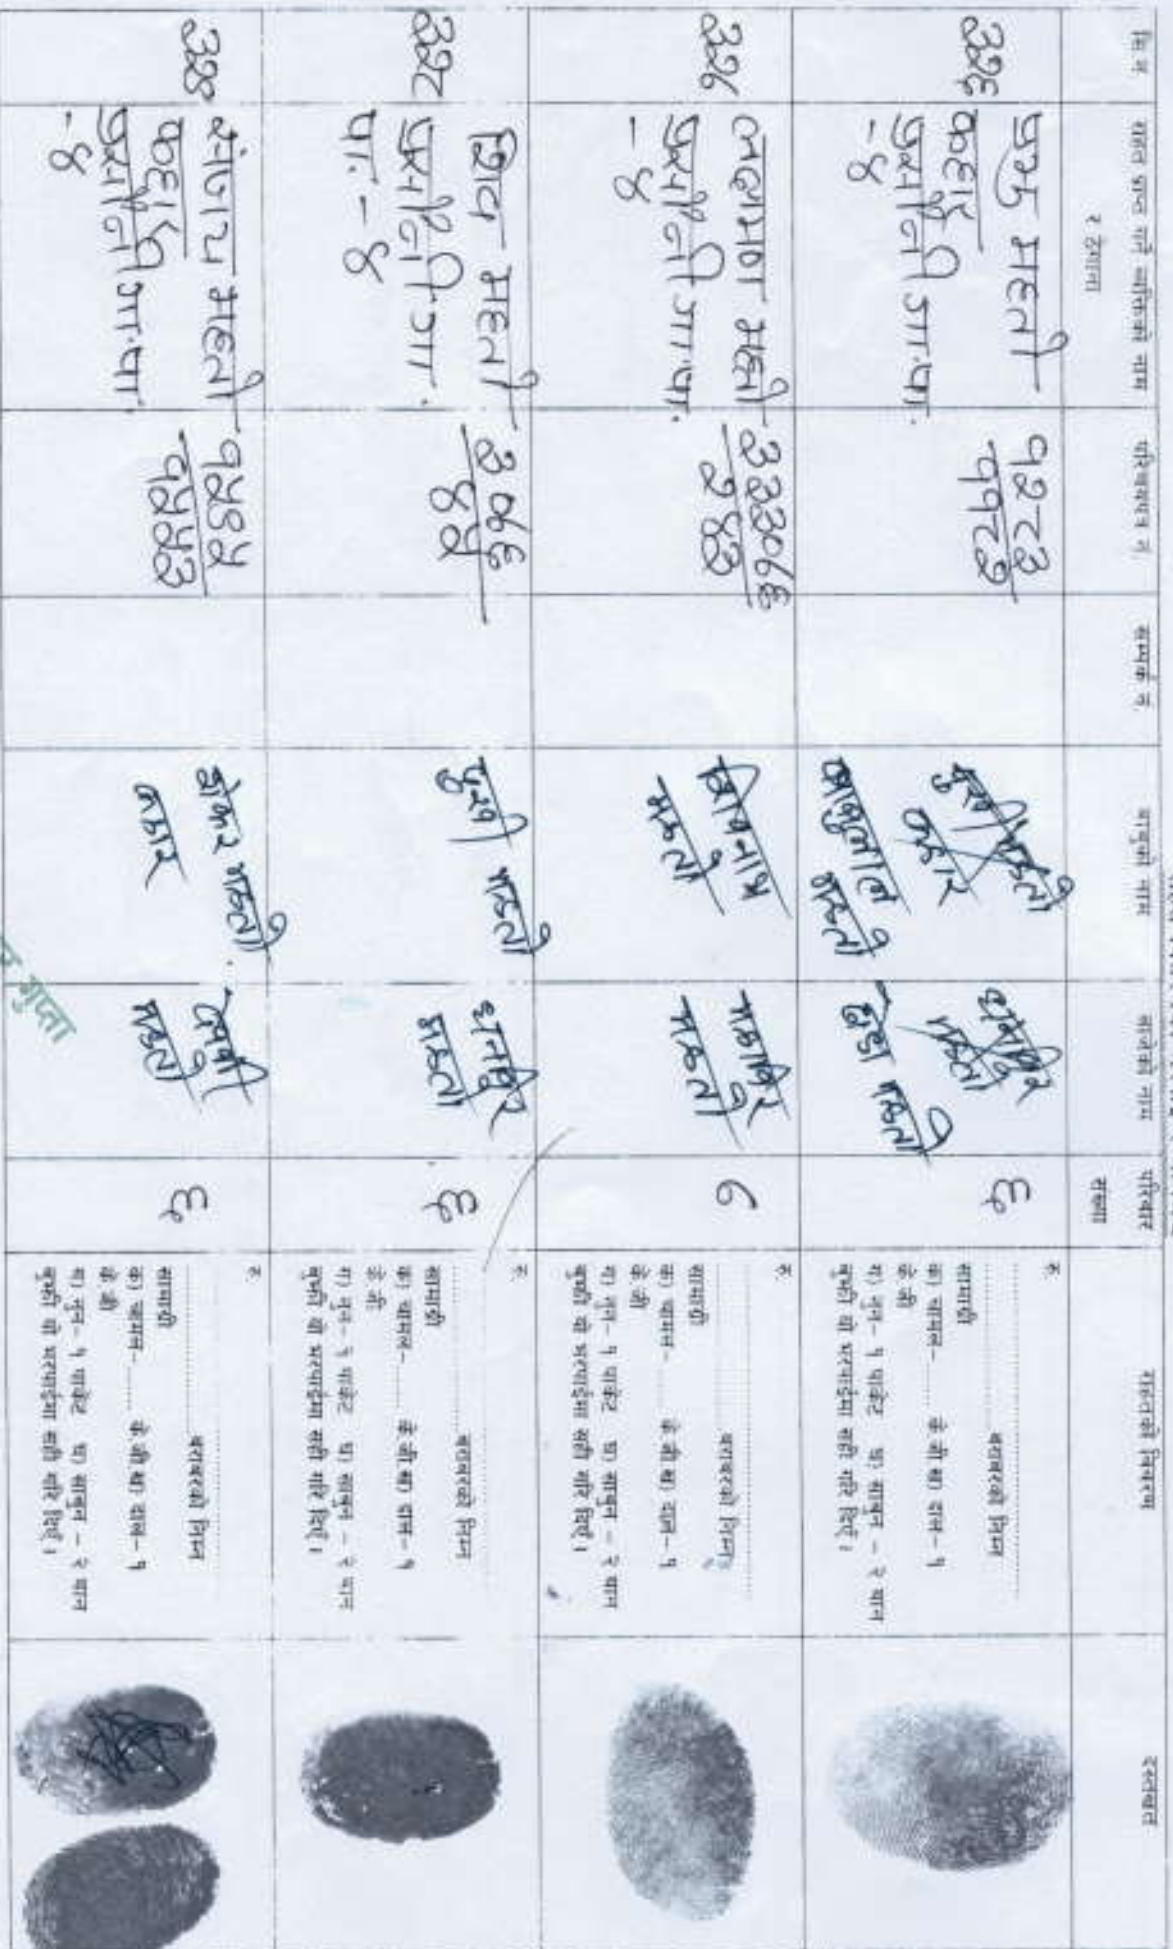 सि.नं. राहत प्राप्त गर्ने व्यक्तिको नाम र ठेगाना परिचयपत्र नं. सम्पर्क नं. बाबुको नाम बाजेको नाम परिवार संख्या राहतको विवरण दस्तखत
३२६
महतो
प्रसौनी गा.पा.
-४
१२८३
११८७
बाबुलाल महतो
महतो
६
रु. .......... बराबरको निम्न
सामाग्री
क) चामल- ...... के.जी ख) दाल- १
के.जी
ग) नुन- १ पाकेट घ) साबुन - २ थान
बुझी यो भरपाईमा सही गरि दिएँ ।
३२७
लक्ष्मण महतो
प्रसौनी गा.पा.
-४
३३३०७६
२४३
शिवनाथ
महतो
महाविर
महतो
७
रु. .......... बराबरको निम्न
सामाग्री
क) चामल- ...... के.जी ख) दाल- १
के.जी
ग) नुन- १ पाकेट घ) साबुन - २ थान
बुझी यो भरपाईमा सही गरि दिएँ ।
३२८
शिव महतो
प्रसौनी गा.
पा. - ४
३०७६
४५
महतो
धनविर
महतो
६
रु. .......... बराबरको निम्न
सामाग्री
क) चामल- ...... के.जी ख) दाल- १
के.जी
ग) नुन- १ पाकेट घ) साबुन - २ थान
बुझी यो भरपाईमा सही गरि दिएँ ।
३२९
महतो
प्रसौनी गा.पा.
-४
१५४५
१५५३
महतो
कहार
महतो
६
रु. .......... बराबरको निम्न
सामाग्री
क) चामल- ...... के.जी ख) दाल- १
के.जी
ग) नुन- १ पाकेट घ) साबुन - २ थान
बुझी यो भरपाईमा सही गरि दिएँ ।
गुप्ता